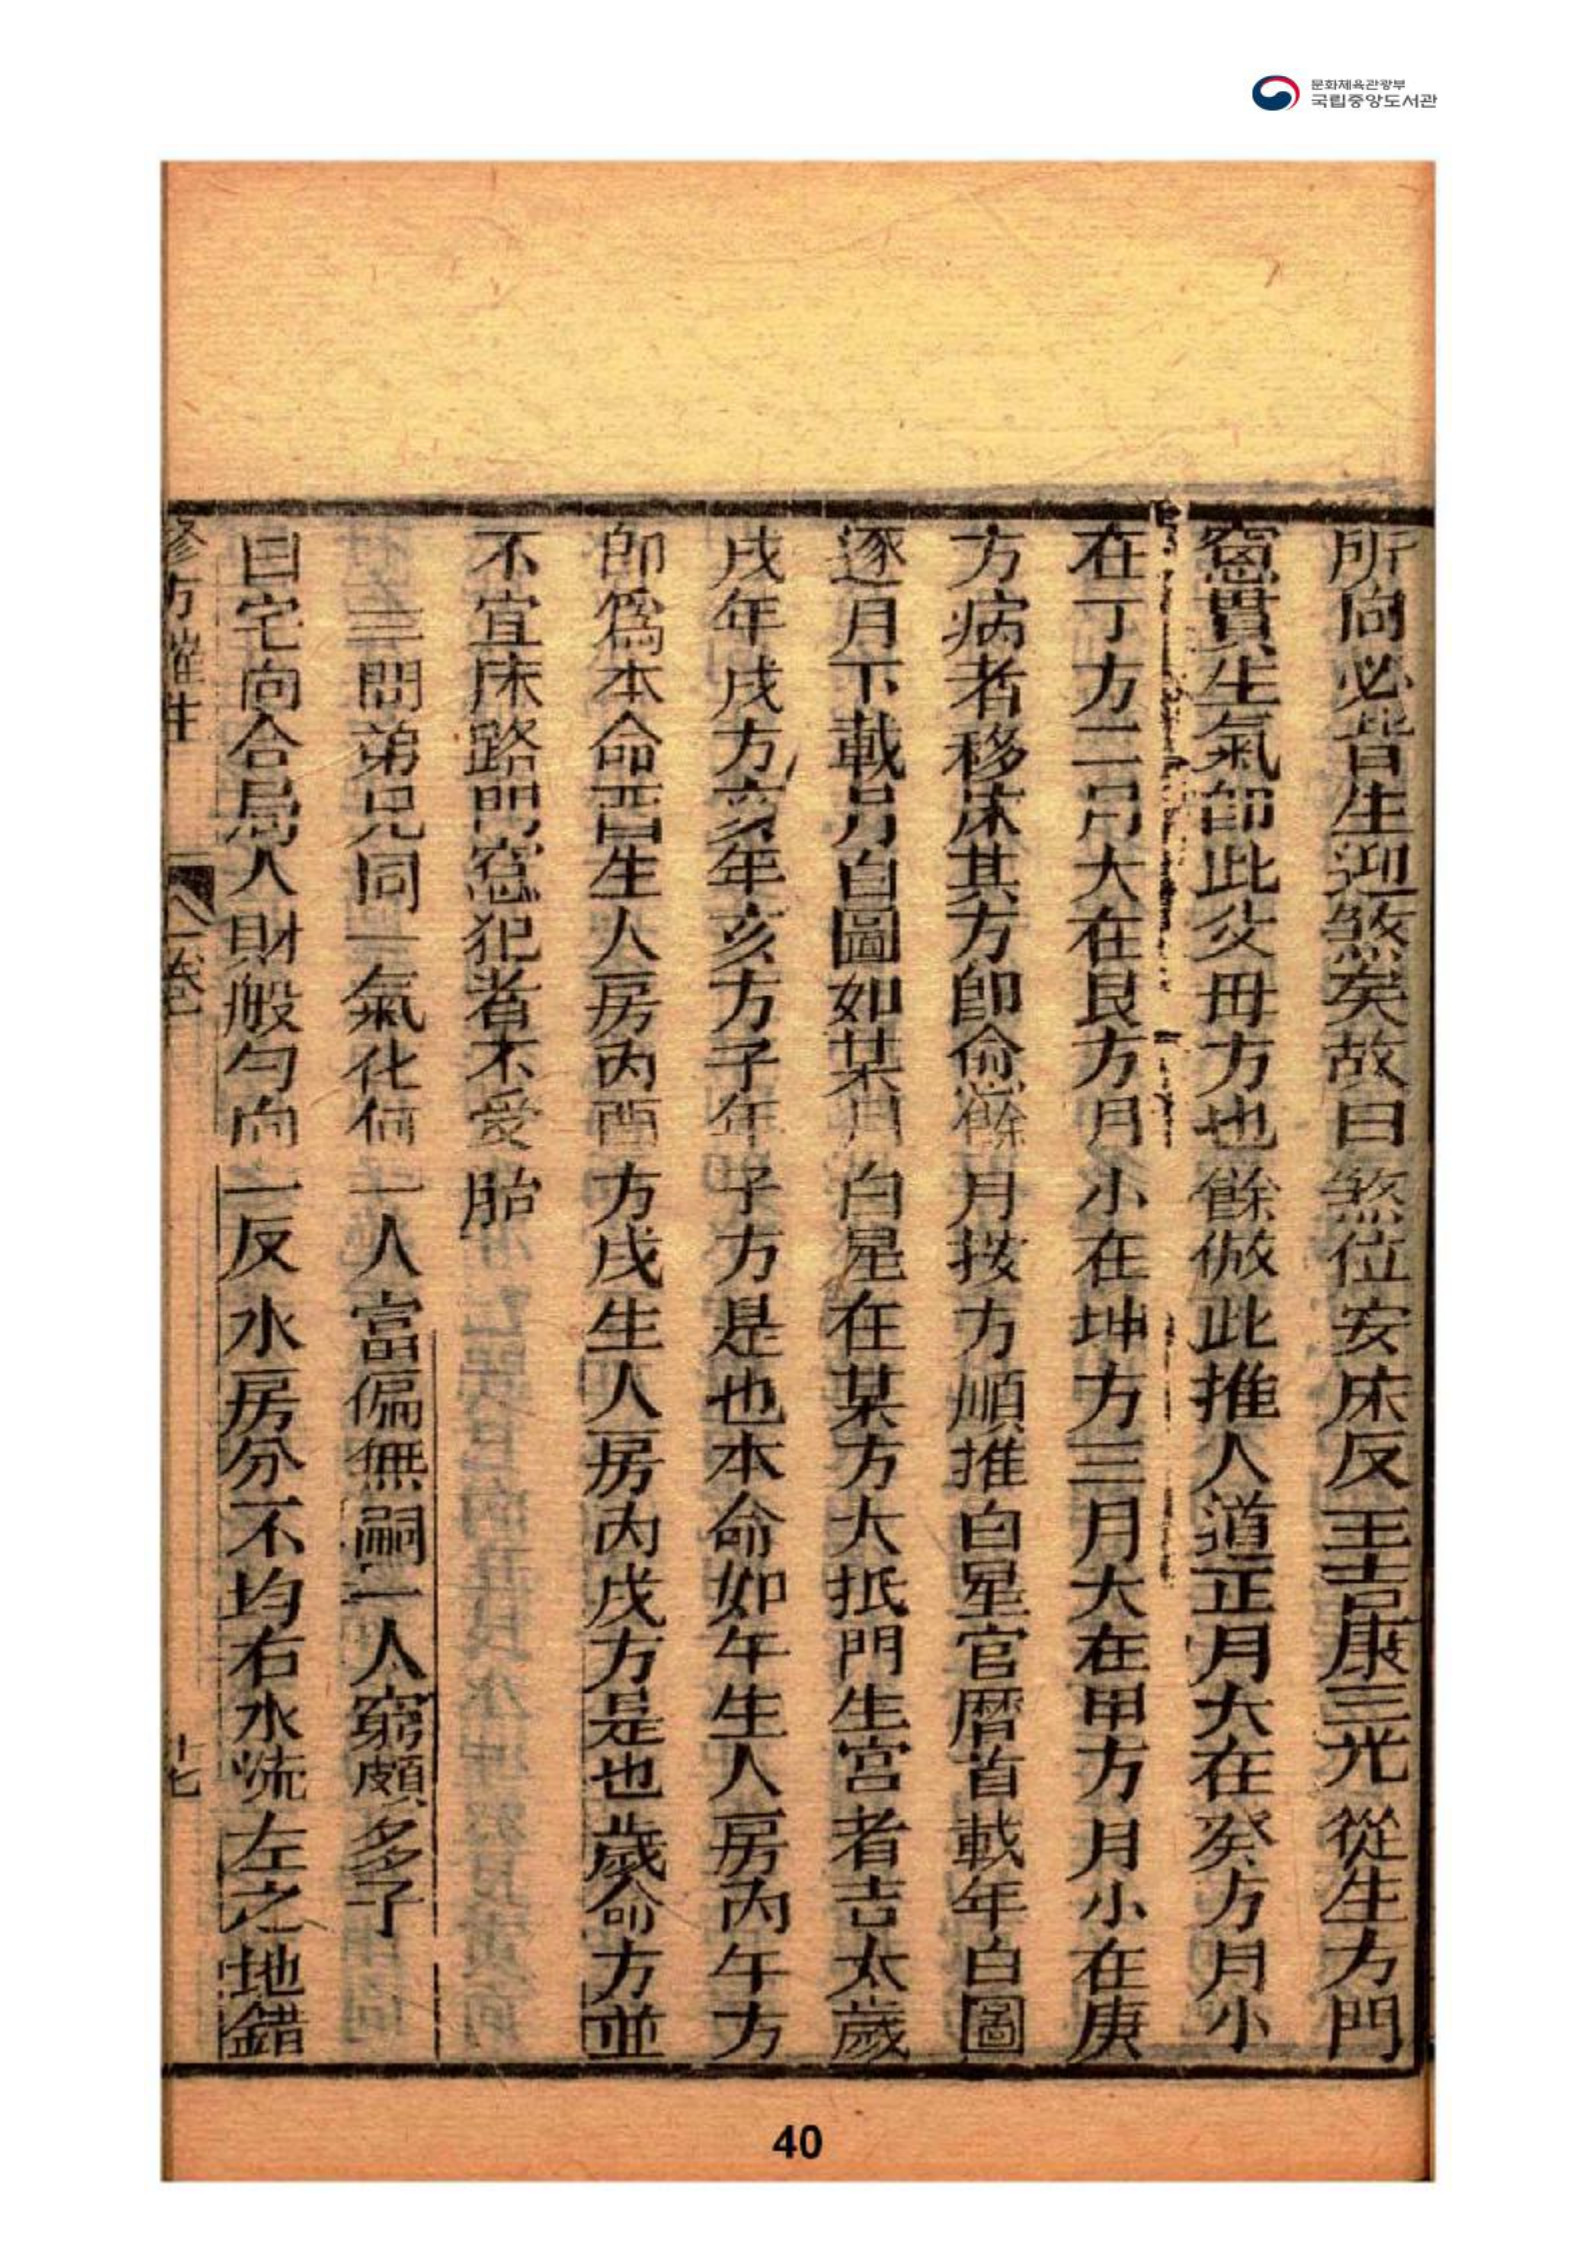 문화체육관광부
국립중앙도서관
所向必背生迎煞矣故曰煞位安床反王吉康三光從生方門
窓貫生氣卽此父母方也餘倣此推人道正月大在癸方月小
在丁方二月大在艮方月小在坤方三月大在甲方月小在庚
方病者移床其方卽愈餘月按方順推白星官曆首載年白圖
逐月下載月白圖如某月白星在某方大抵門生宮者吉太歲
戌年戌方亥年亥方子年子方是也本命如午生人房內午方
卽爲本命酉生人房內酉方戌生人房內戌方是也歲命方並
不宜床路門窓犯者不受胎
三問弟兄同一氣化何一人富偏無嗣一人窮頗多子
曰宅向合局人財般勻向一反水房分不均右水流左之地錯
修方催生
卷
十七
40